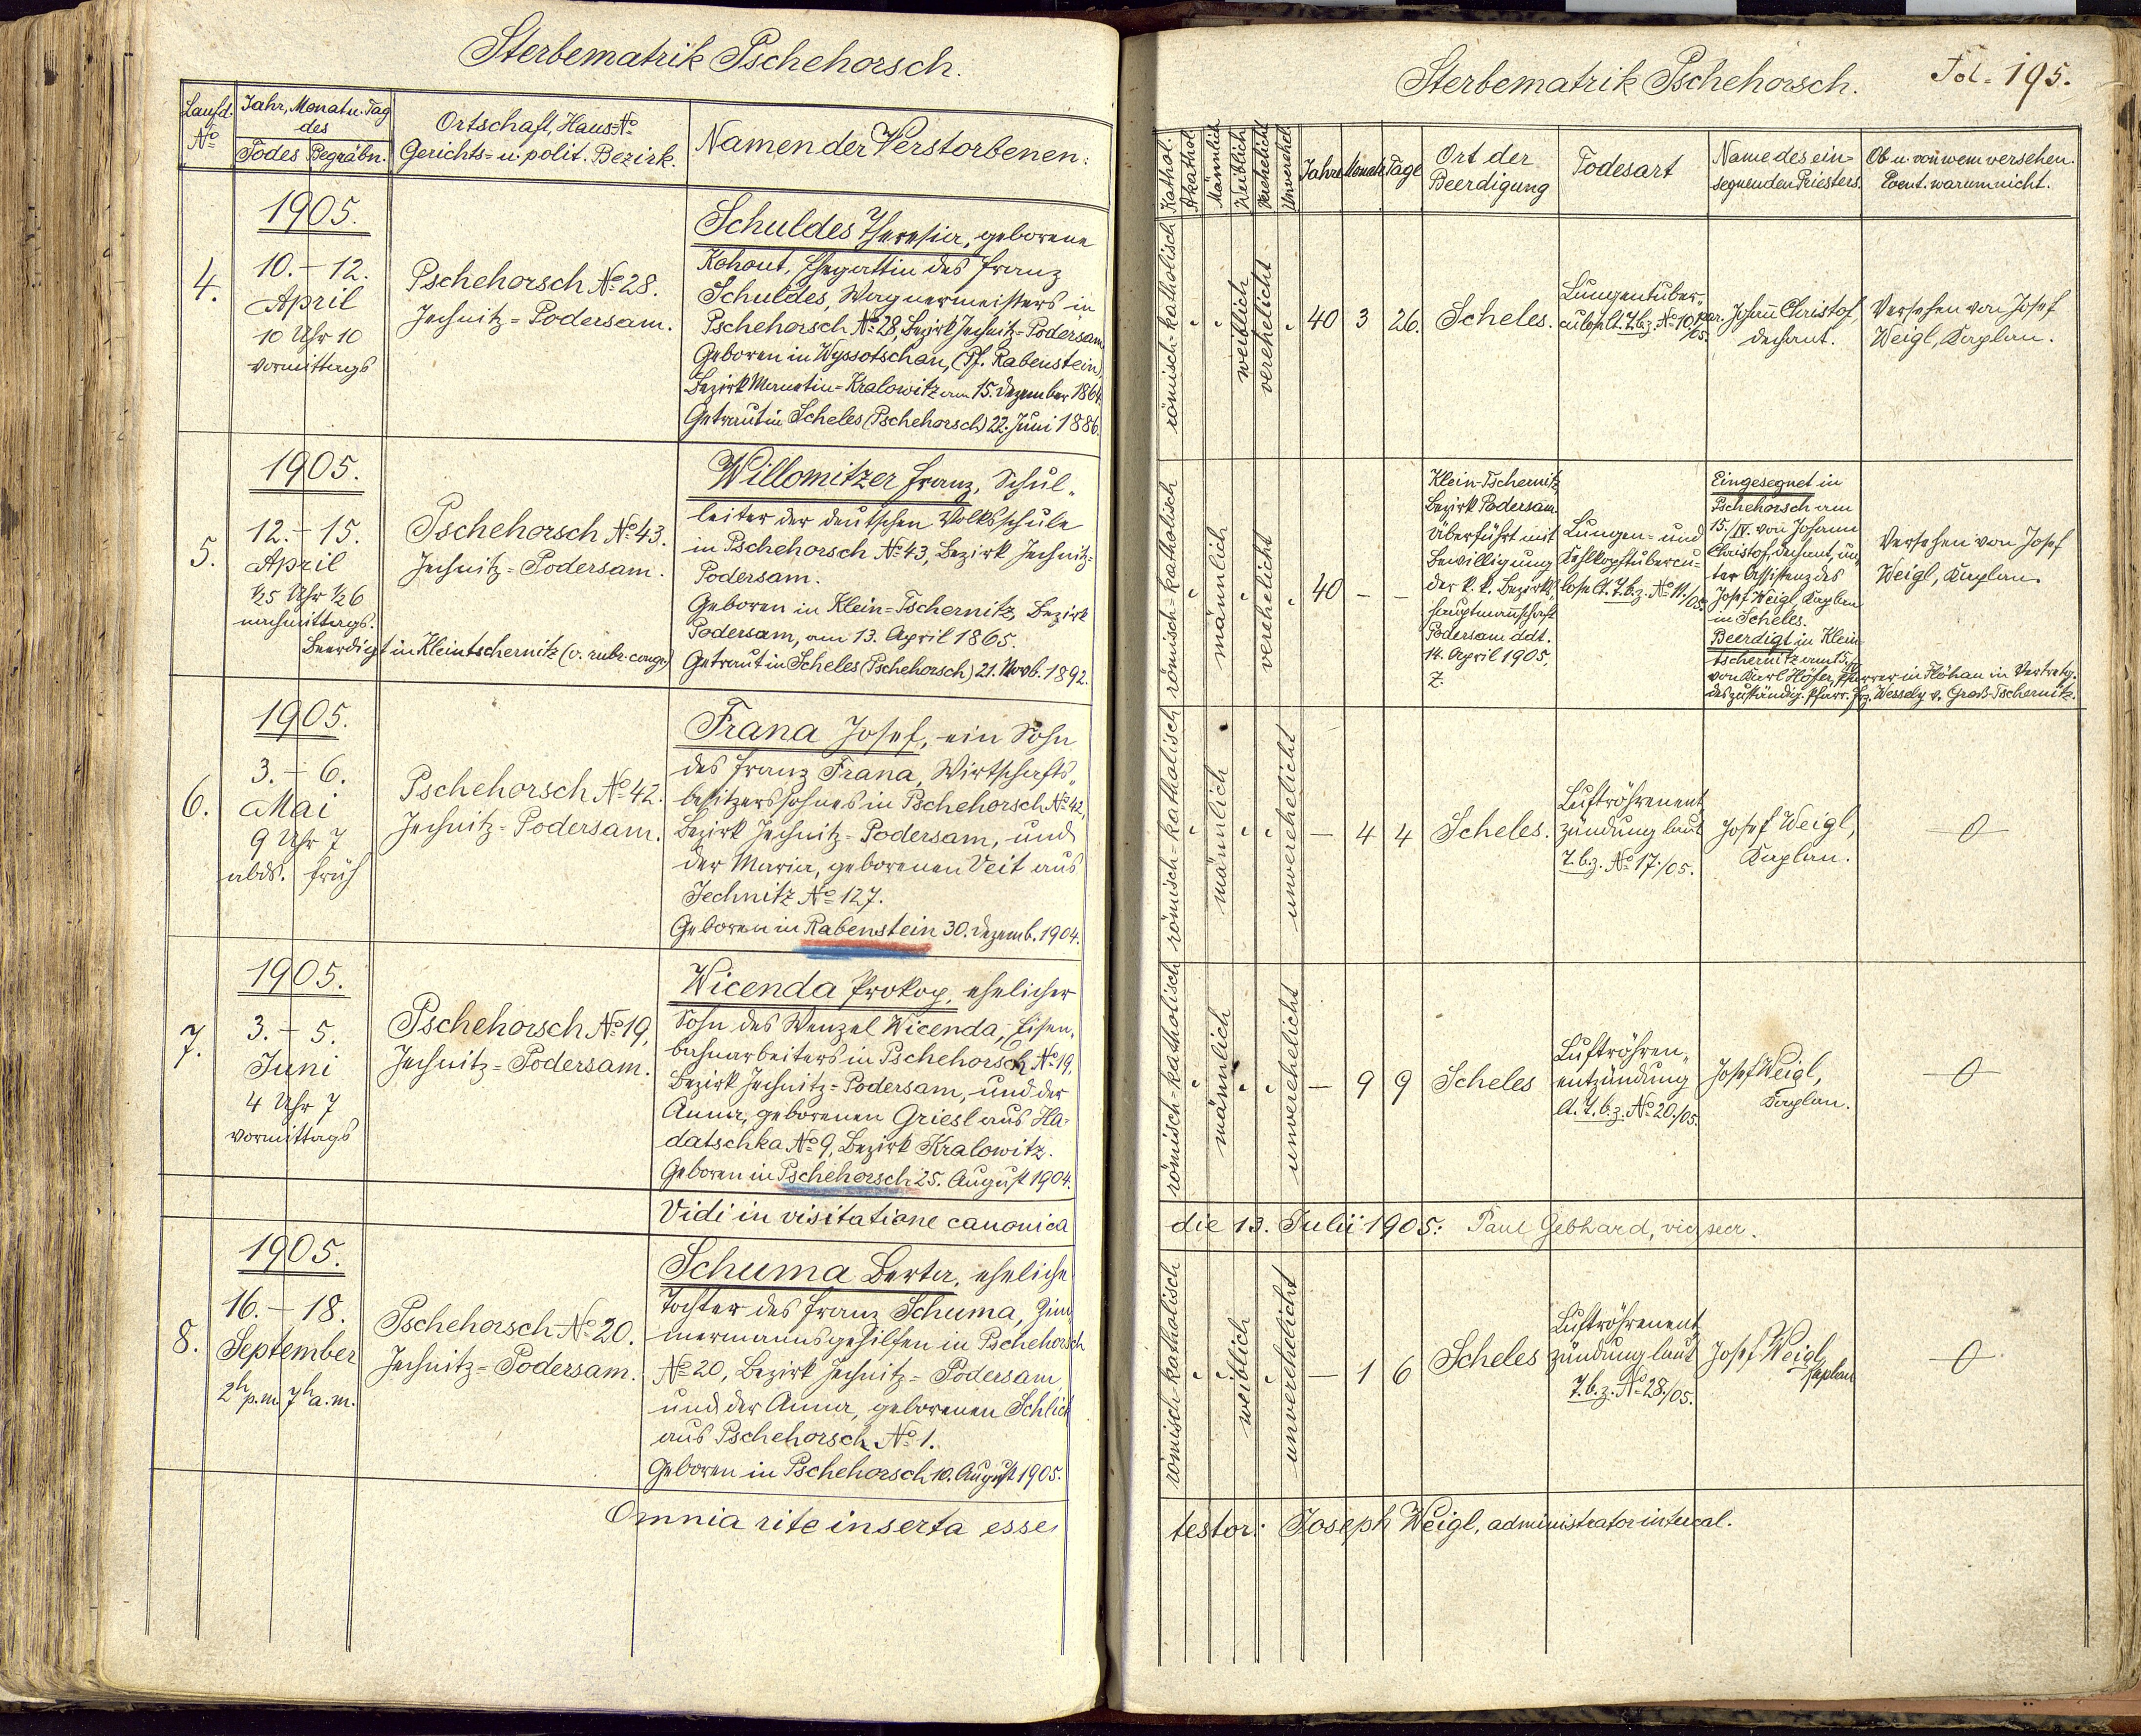 Sterbematrik Pschehorsch.
Laufd. No
Jahr, Monat u. Tag
des
Todes Begräbn.
Ortschaft, Haus=No
Gerichts= u. polit. Bezirk.
Namen der Verstorbenen:
4.
1905.
10. – 12.
April
10 Uhr 10
vormittags
Pschehorsch No 28.
Jechnitz=Podersam.
Schuldes Theresia, geborene
Kohout, Ehegattin des Franz
Schuldes, Wagnermeisters in
Pschehorsch No 28, Bezirk Jechnitz=Podersam.
Geboren in Wyssotschan, (Pf. Rabenstein),
Bezirk Manetin=Kralowitz am 15. Dezember 1864.
Getraut in Scheles (Pschehorsch) 22. Juni 1886.
5.
1905.
12. – 15.
April
½5 Uhr ½6
nachmittags.
Beerdigt in Kleintschernitz (v. rubr. congr.)
Pschehorsch No 43.
Jechnitz=Podersam.
Willomitzer Franz, Schul„
leiter der deutschen Volksschule
in Pschehorsch No 43, Bezirk Jechnitz=
Podersam.
Geboren in Klein=Tschernitz, Bezirk
Podersam, am 13. April 1865.
Getraut in Scheles (Pschehorsch) 21. Novb. 1892.
6.
1905.
3. – 6.
Mai
9 Uhr 7
abds. früh
Pschehorsch No 42.
Jechnitz=Podersam.
Frana Josef, ein Sohn
des Franz Frana, Wirtschafts„
besitzerssohnes in Pschehorsch No 42,
Bezirk Jechnitz=Podersam, und
der Maria, geborenen Veit aus
Jechnitz No 127.
Geboren in Rabenstein 30. Dezemb. 1904.
7.
1905.
3. – 5.
Juni
4 Uhr 7
vormittags
Pschehorsch No 19,
Jechnitz=Podersam.
Wicenda Prokop, ehelicher
Sohn des Wenzel Wicenda, Eisen„
bahnarbeiters in Pschehorsch No 19,
Bezirk Jechnitz=Podersam, und der
Anna, geborenen Griesl aus Ha=
datschka No 9, Bezirk Kralowitz.
Geboren in Pschehorsch 25. August 1904.
Vidi in visitatione canonica
8.
1905.
16. – 18.
September
2h p.m. 7h a.m.
Pschehorsch No 20.
Jechnitz=Podersam.
Schuma Berta, eheliche
Tochter des Franz Schuma, Zim„
mermannsgehilfen in Pschehorsch
No 20, Bezirk Jechnitz=Podersam
und der Anna, geborenen Schlick
aus Pschehorsch No 1.
Geboren in Pschehorsch 10. August 1905.
Omnia rite inserta esse
Sterbematrik Pschehorsch.
Fol. 195.
Kathol.
Akathol.
Männlich
Weiblich
Verehelicht
Unverehel.
Jahre
Monate
Tage
Ort der
Beerdigung
Todesart
Name des ein=
segnenden Priesters.
Ob u. von wem versehen.
Event. warum nicht.
römisch=katholisch
weiblich
verehelicht
40 3 26.
Scheles.
Lungentuber„
culose lt. T.b.z. No 10./05.
Johann Christof,
Dechant.
Versehen von Josef
Weigl, Kaplan.
römisch=katholisch
männlich
verehelicht
40 – –
Klein-Tschernitz,
Bezirk Podersam
Überführt mit
Bewilligung
der k. k. Bezirks„
hauptmannschaft
Podersam ddt.
14. April 1905,
Z.
Lungen= und
Kehlkopftubercu=
lose lt. T.b.z. No 11./05.
Eingesegnet in
Pschehorsch am
15./IV. von Johann
Christof, Dechant, un„
ter Assistenz des
Josef Weigl, Kaplan
in Scheles.
Beerdigt in Klein-
tschernitz am 15./IV.
von Karl Höfer, Pfarrer in Flöhau in Vertretg.
des zuständig. Pfarr. Frz. Wessely v. Groß=Tschernitz.
Versehen von Josef
Weigl, Kaplan.
römisch=katholisch
männlich
unverehelicht
– 4 4
Scheles.
Luftröhrenent„
zündung laut
T.b.z. No 17./05.
Josef Weigl,
Kaplan.
–0–
römisch=katholisch
männlich
unverehelicht
– 9 9
Scheles
Luftröhren„
entzündung
lt. T.b.z. No 20./05.
Josef Weigl,
Kaplan.
–0–
die 13. Julii 1905: Paul Gebhard, vic. secr.
römisch-katholisch
weiblich
unverehelicht
– 1 6
Scheles
Luftröhrenent„
zündung laut
T.b.z. No 28./05.
Josef Weigl
Kaplan
–0–
testor: Joseph Weigl, administrator intercal.